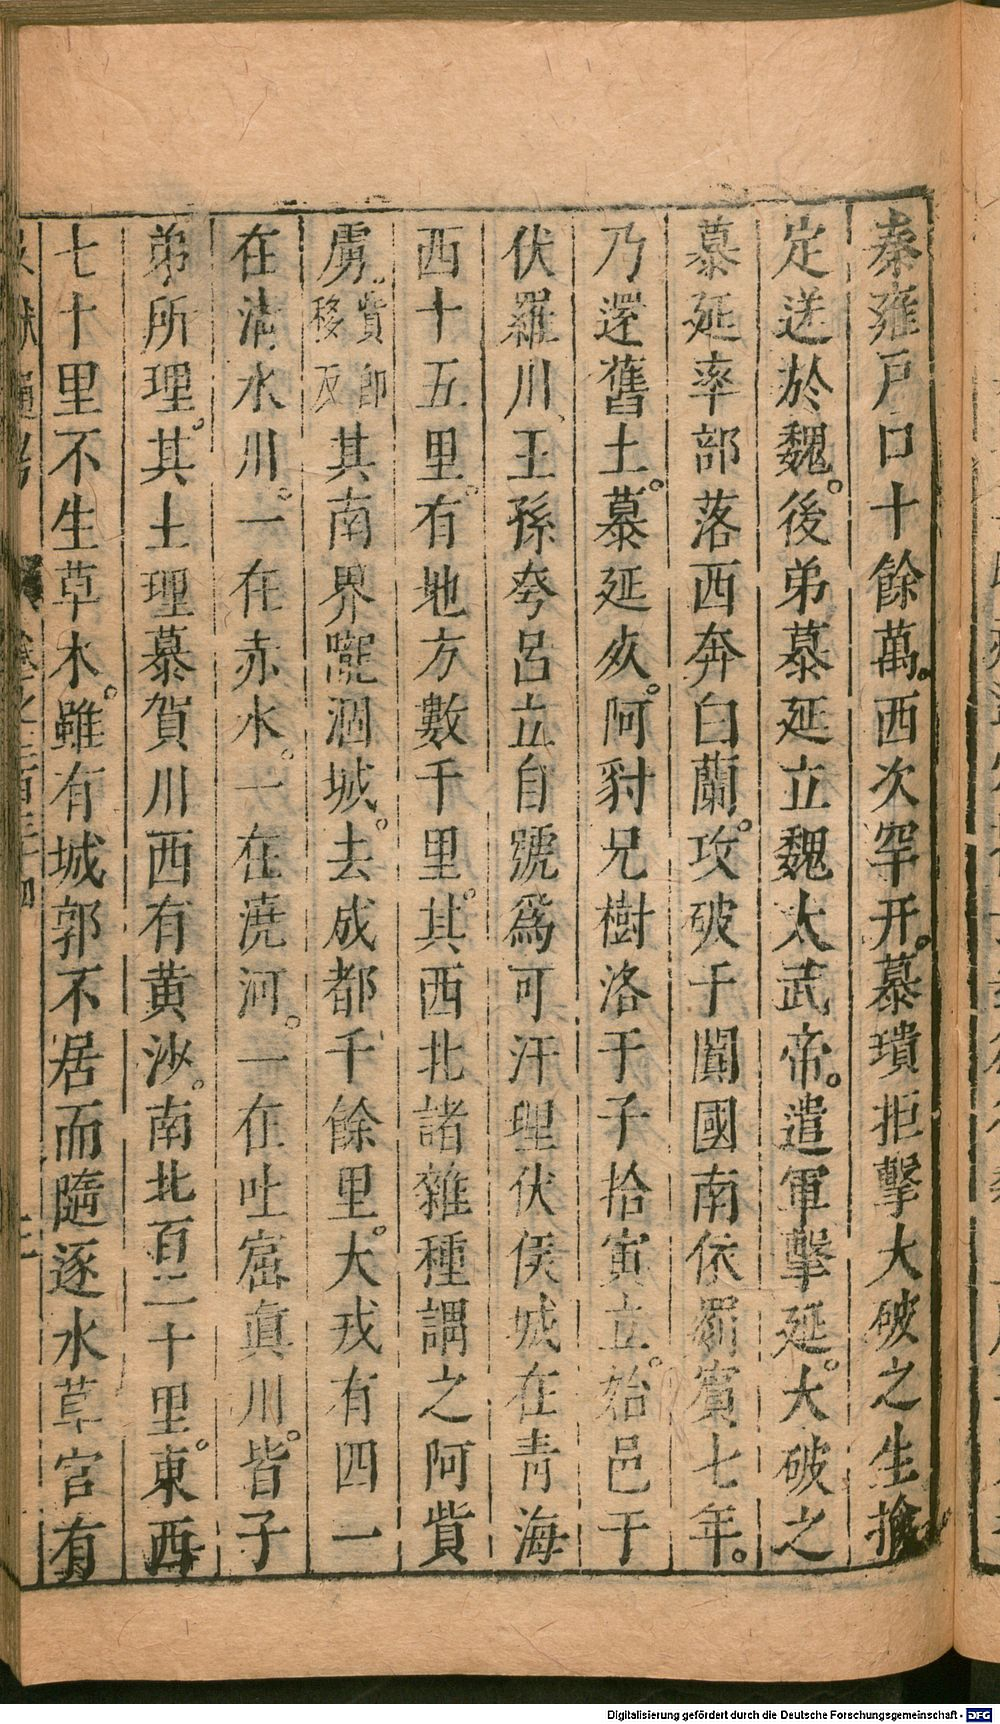 秦雍戶口十餘萬。西次罕幵。慕璝拒擊大破之生擒
定送於魏。後弟慕延立魏太武帝。遣軍擊延。大破之
慕延率部落西奔白蘭。攻破于闐國南依罽賓七年。
乃還舊土。慕延死。阿豺兄樹洛于子拾寅立。始邑于
伏羅川、王孫夸呂立自號爲可汗理伏俟城在青海
西十五里。有地方數千里。其西北諸雜種謂之阿貲
虜。貲即移反其南界㖂涸城。去成都千餘里。大戎有四一
在清水川。一在赤水。一在澆河。一在吐窟眞川。皆子
弟所理。其土理慕賀川西有黄沙。南北百二十里。東西
七十里不生草木。雖有城郭不居而隨逐水草官有
文獻通考 卷之三百三十四
Digitalisierung gefördert durch die Deutsche Forschungsgemeinschaft - DFG